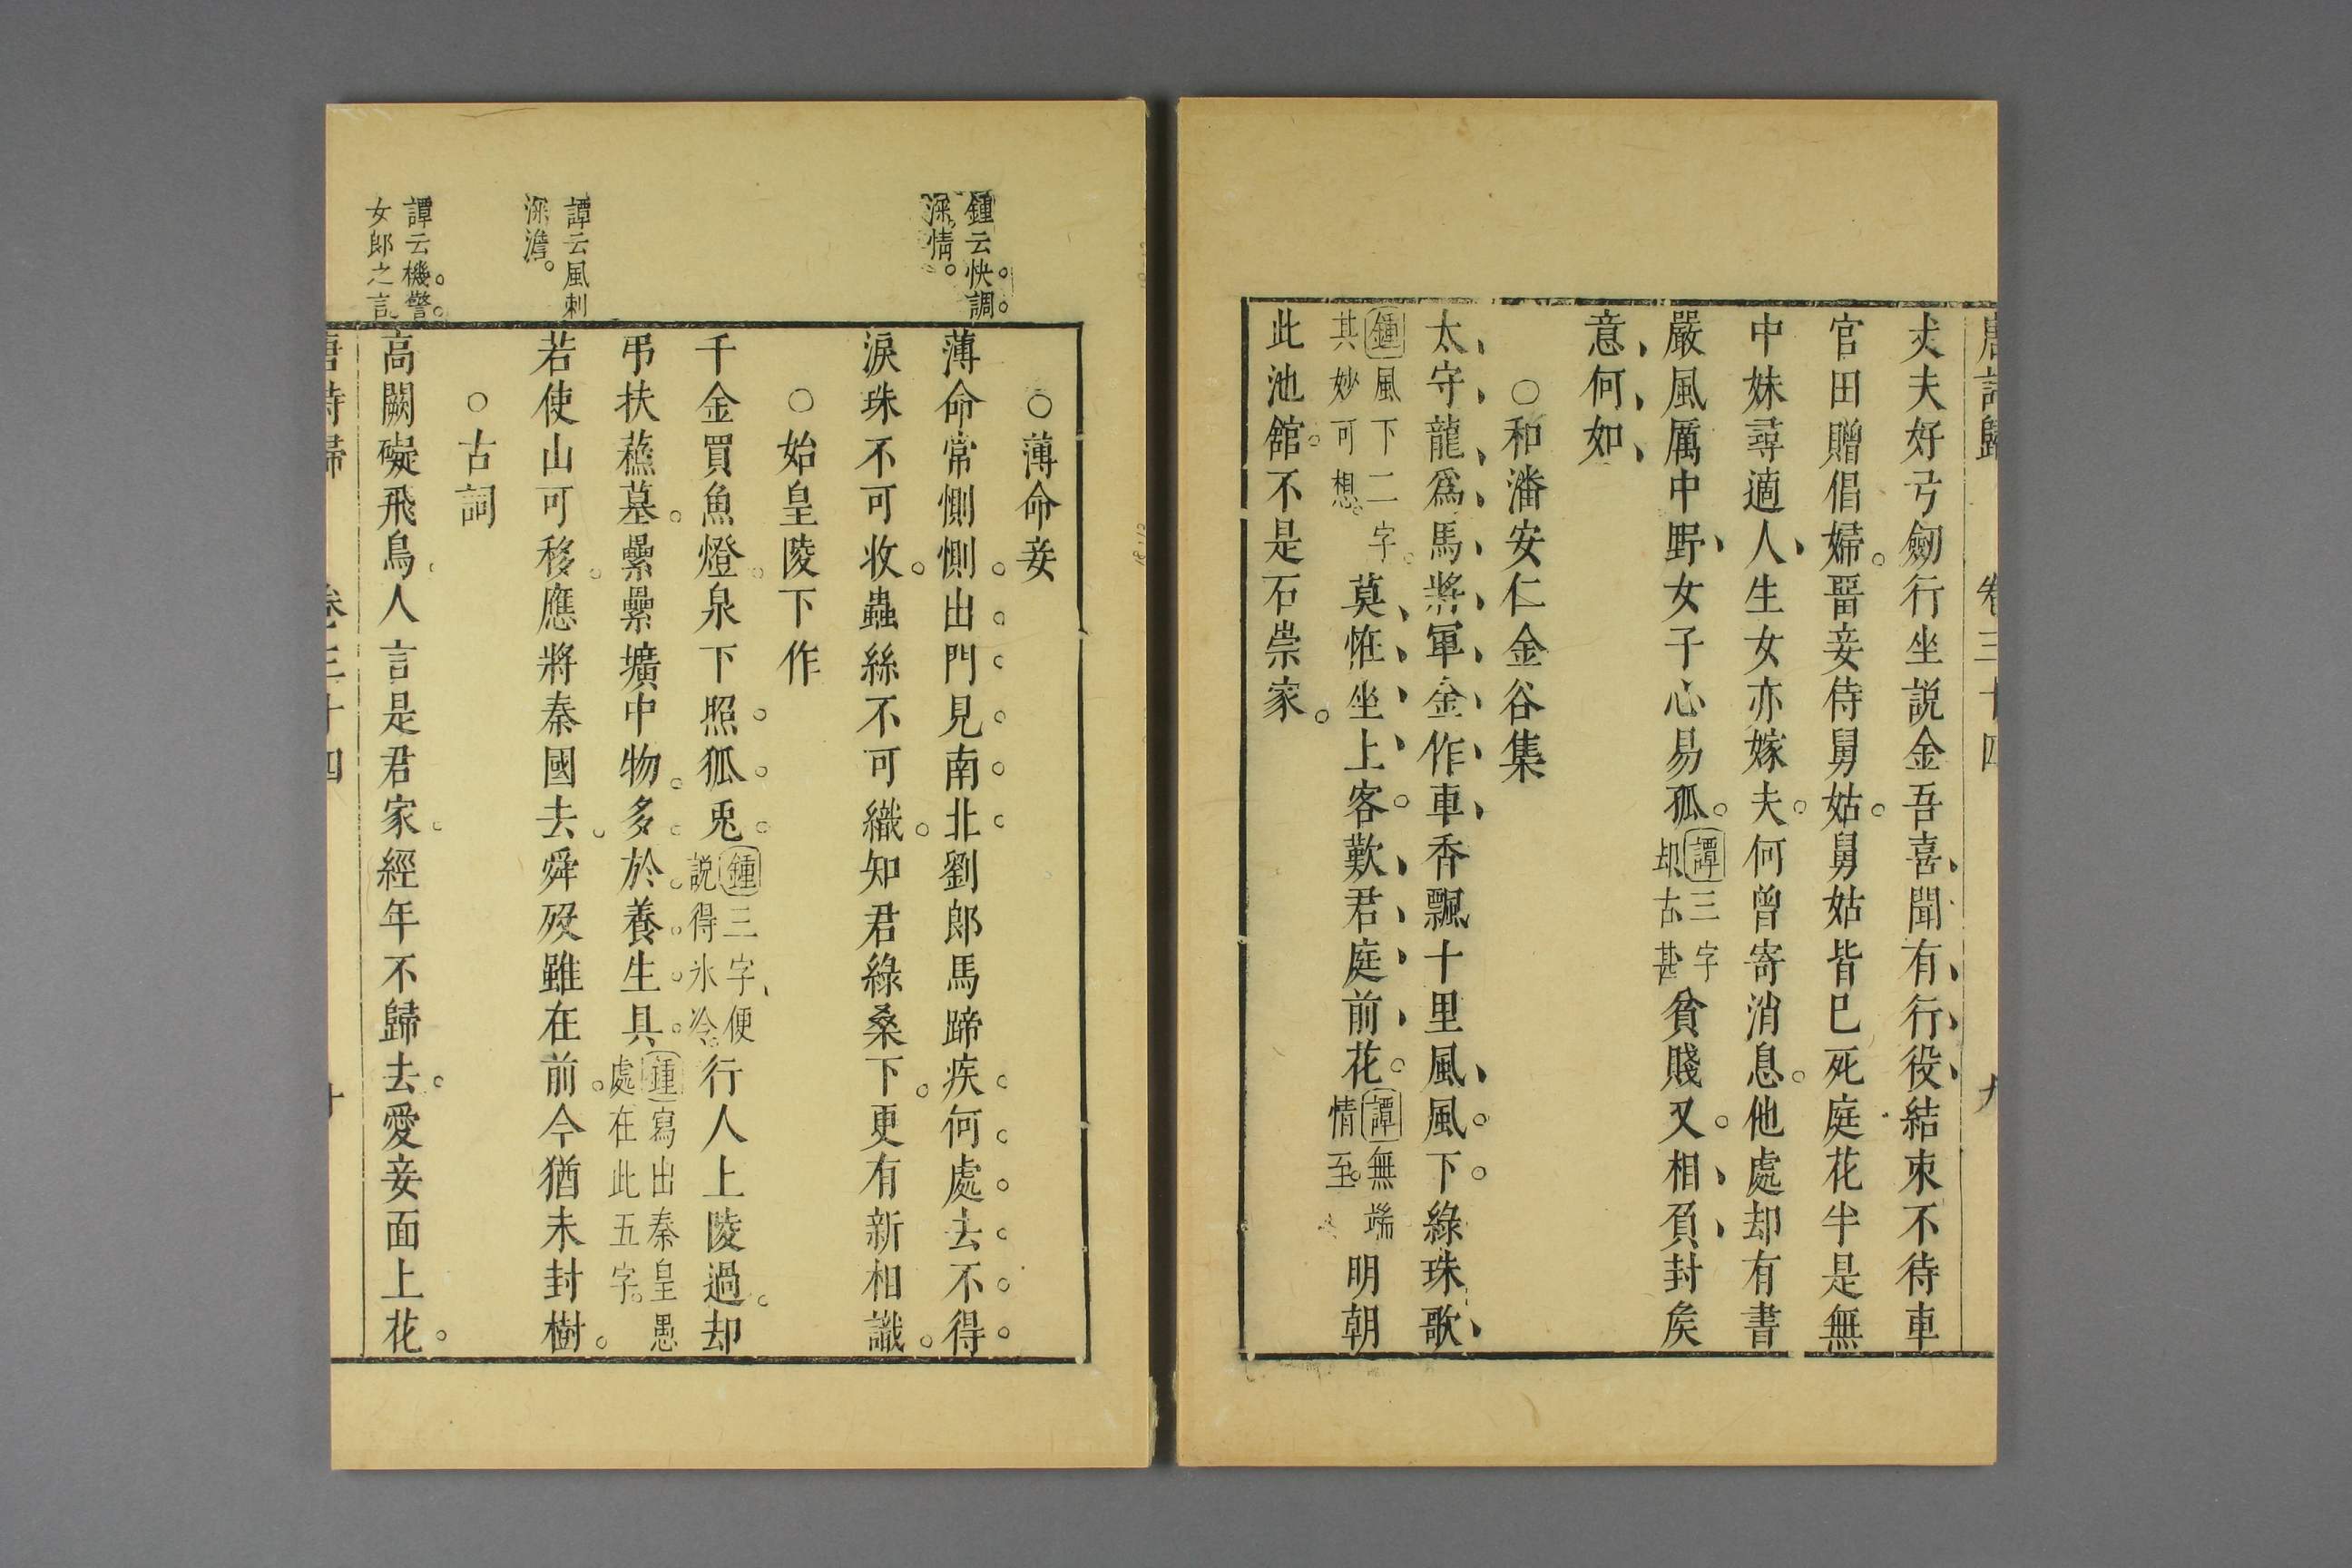 唐詩歸 卷三十四 九
夫夫好弓劒行坐説金吾喜聞有行役結束不待車
官田贈倡婦畱妾侍舅姑舅姑皆巳死庭花半是無
中妹尋適人生女亦嫁夫何曾寄消息他處却有書
嚴風厲中野女子心易孤
譚三字
却古甚
貧賤又相負封矦
意何如
○和潘安仁金谷集
太守龍爲馬將軍金作車香飄十里風風下綠珠歌
鍾風下二字
其妙可想
莫恠坐上客歎君庭前花
譚無端
情至
明朝
此池舘不是石崇家
鍾云快調
深情
○薄命妾
薄命常惻惻出門見南北劉郎馬蹄疾何處去不得
淚珠不可收蟲絲不可織知君綠桑下更有新相識
○始皇陵下作
千金買魚燈泉下照狐兎
鍾三字便
説得氷冷
行人上陵過却
弔扶蘓墓纍纍壙中物多於養生具
鍾寫出秦皇愚
處在此五字
譚云風刺
深澹
若使山可移應將秦國去舜歿雖在前今猶未封樹
○古詞
譚云機警
女郎之言
高闕礙飛鳥人言是君家經年不歸去愛妾面上花
唐詩歸 卷三十四 十